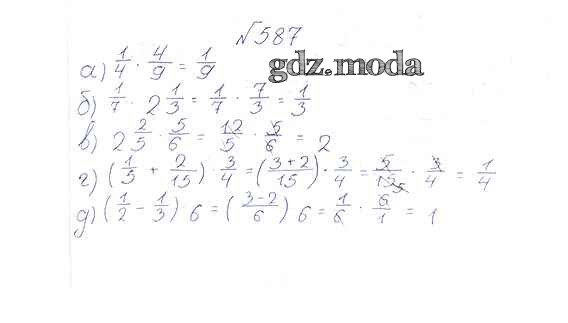 №587
а) 1/4 · 4/9 = 1/9
gdz.moda
б) 1/7 · 2 1/3 = 1/7 · 7/3 = 1/3
в) 2 2/5 · 5/6 = 12/5 · 5/6 = 2
г) (1/5 + 2/15) · 3/4 = (3+2/15) · 3/4 = 5/15 5 · 3/4 = 1/4
д) (1/2 - 1/3) 6 = (3-2/6) 6 = 1/6 · 6/1 = 1